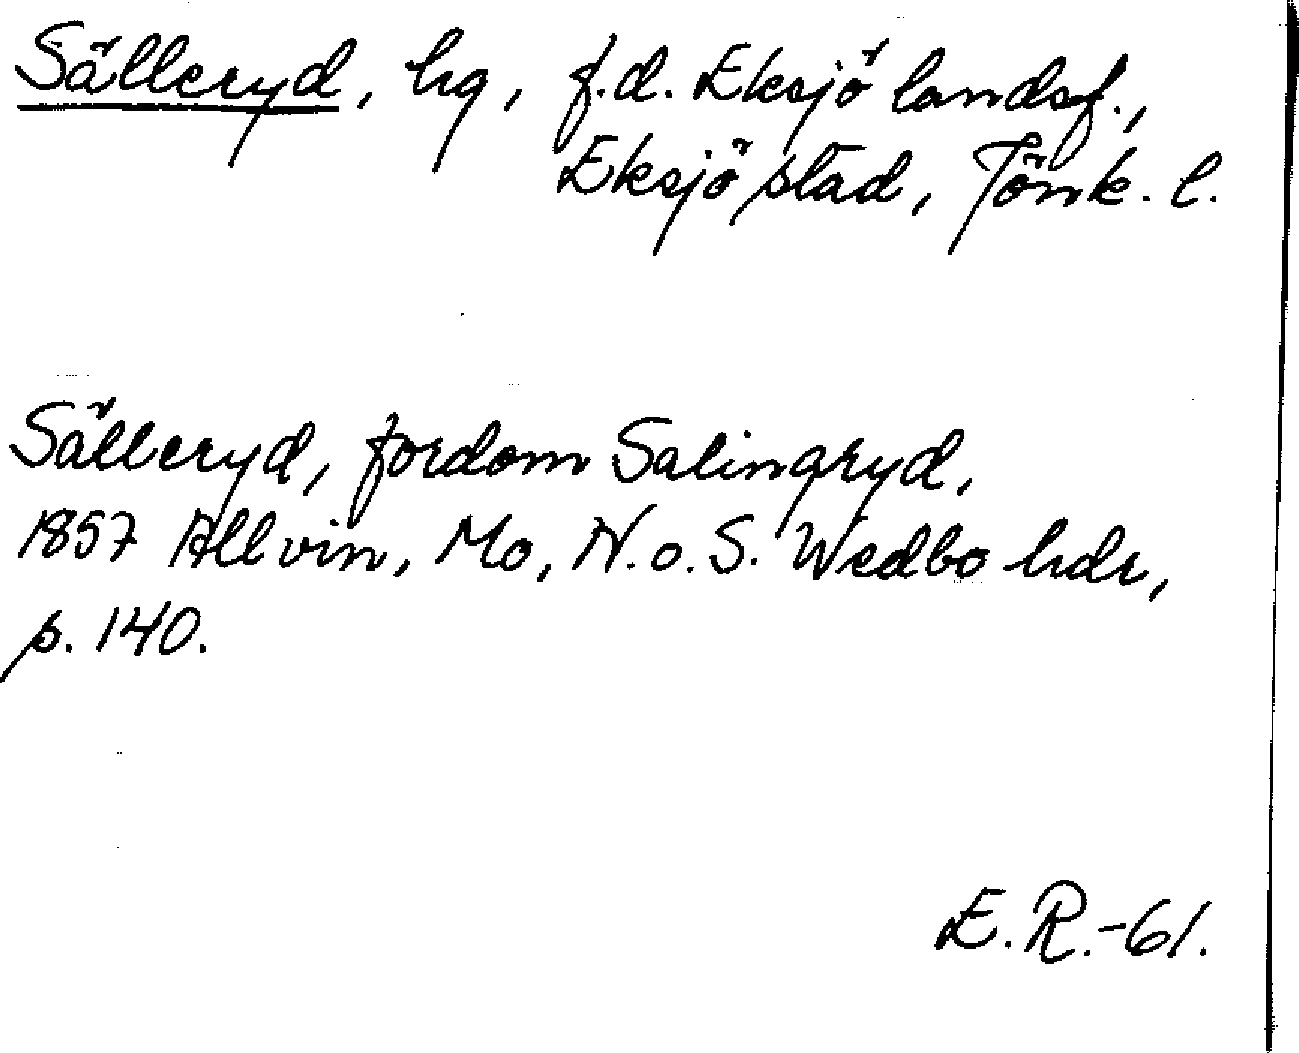 Sälleryd, hg, f.d. Eksjö landsf.,
Eksjö stad, Jönk. l.
Sälleryd, fordom Salingryd,
1857 Allvin, Mo, N. o. S. Wedbo hdr,
s. 140.
E. R.-61.